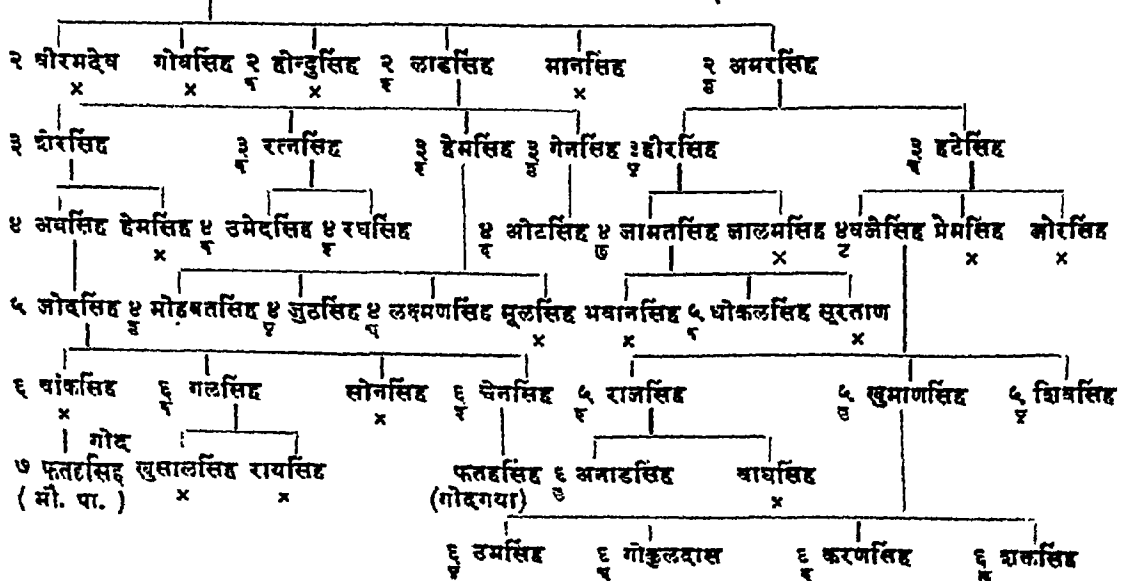 २ वीरमदेव गोवसिंह २ होन्दुसिंह २ लाडसिंह मानसिंह २ अमरसिंह
× × × ×
३ शेरसिंह ३ रत्नसिंह ३ हेमसिंह ३ गेनसिंह ३ हीरसिंह ३ हटेसिंह
४ अवसिंह हेमसिंह ४ उमेदसिंह ४ रघसिंह ४ ओटसिंह ४ जामतसिंह जालमसिंह ४ वजेसिंह प्रेमसिंह जोरसिंह
× × × ×
५ जोदसिंह ४ मोहबतसिंह ४ जुठसिंह ४ लक्ष्मणसिंह मूलसिंह भवानसिंह ५ धोकलसिंह सूरताण
× × ×
६ वांकसिंह ६ गलसिंह सोनसिंह ६ चेनसिंह ५ राजसिंह ५ खुमाणसिंह ५ शिवसिंह
× ×
गोद
७ फतहसिंह खुसालसिंह रायसिंह फतहसिंह ६ अनाडसिंह वाघसिंह
(मौ. पा.) × × (गोदगया) ×
६ उमसिंह ६ गोकुलदास ६ करणसिंह ६ शक्तसिंह